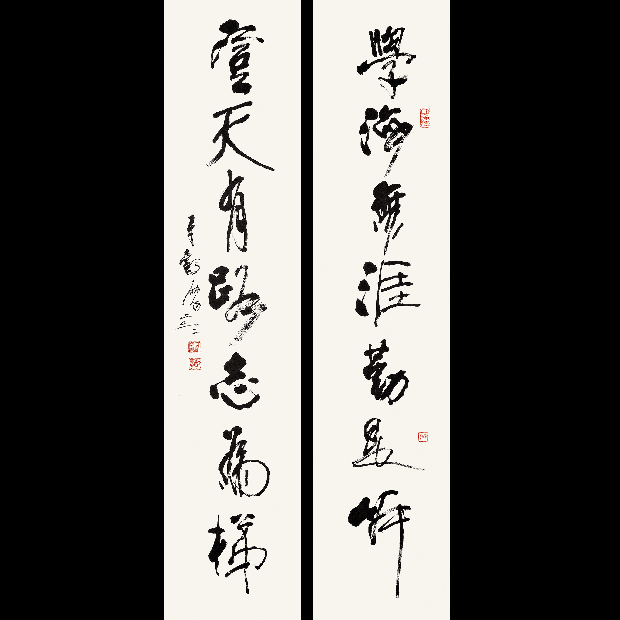 學海無涯勤是岸
雲天有路志為梯